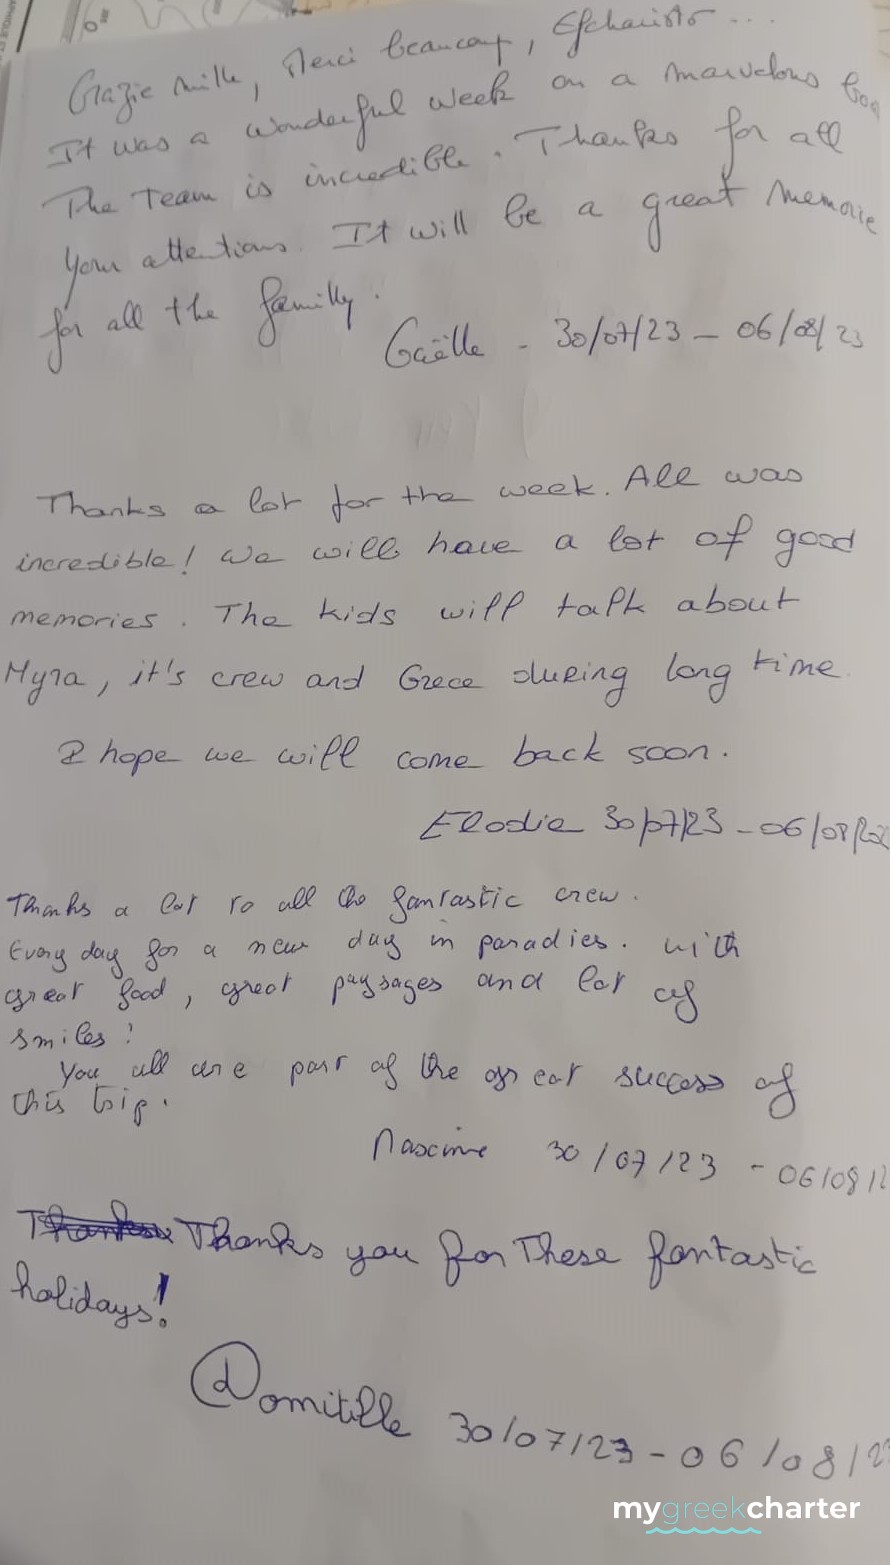 Grazie mille, Merci beaucoup, Efcharisto ...
It was a wonderful week on a marvelous
The Team is incredible. Thanks for all
your attentions. It will be a great memorie
for all the familly.
Gaëlle - 30/07/23 - 06/08/23
Thanks a lot for the week. All was
incredible! We will have a lot of good
memories. The kids will talk about
Myra, it's crew and Grece during long time.
I hope we will come back soon.
Elodie 30/07/23 - 06/08/202
Thanks a lot to all the fantastic crew.
Every day for a new day in paradies. with
great food, great paysages and lot of
smiles!
You all are part of the great success of
this trip.
Maxime 30/07/23 - 06/08/2
Thanks you for These fantastic
holidays!
Domitille 30/07/23 - 06/08/23
mygreekcharter